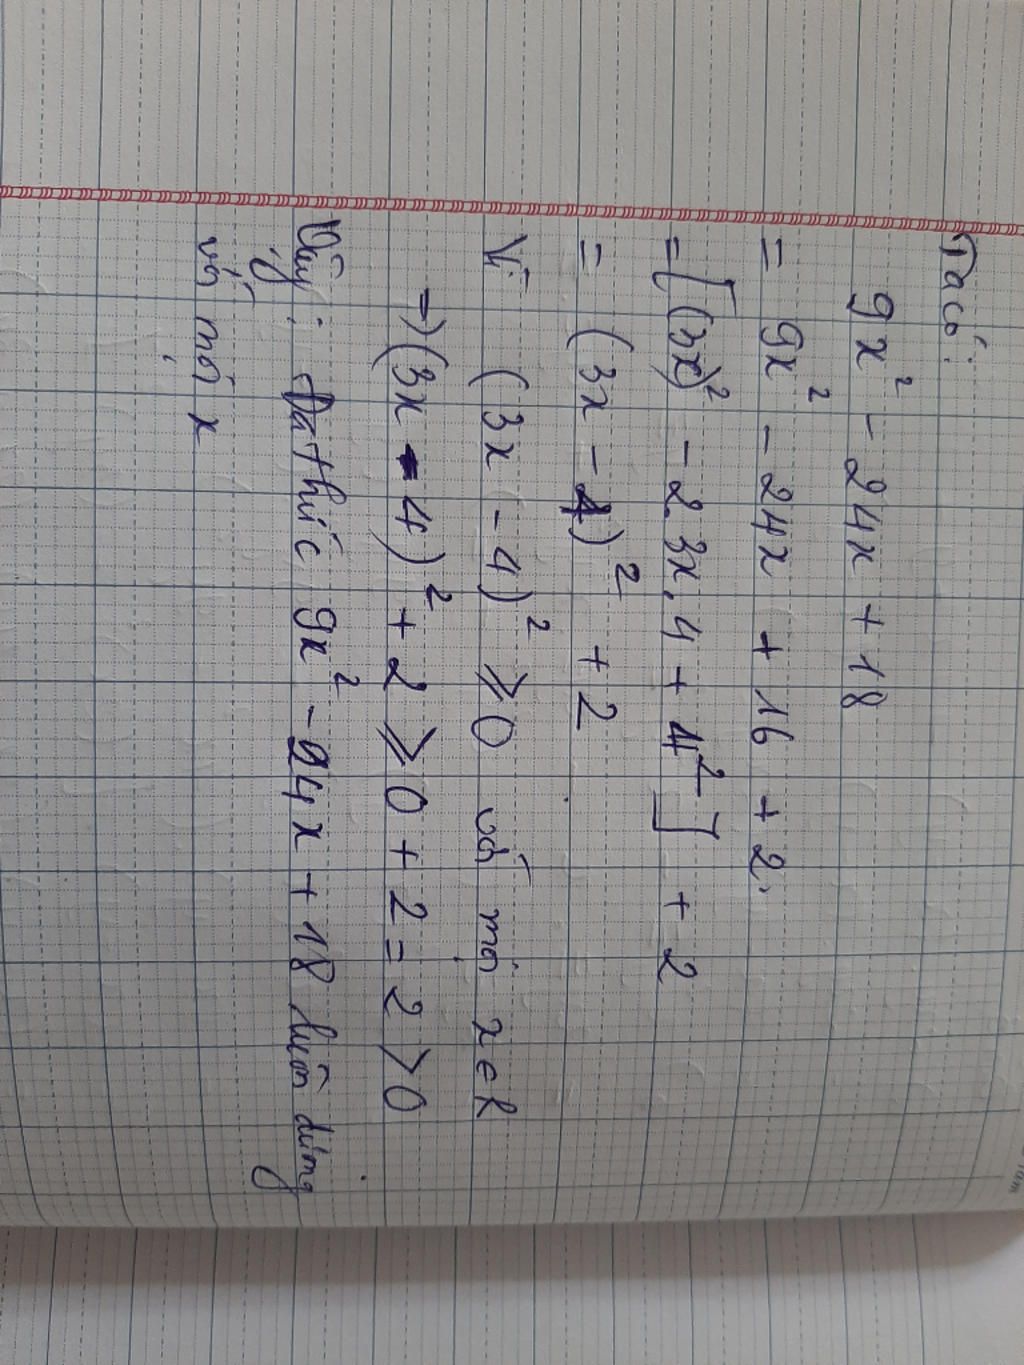 Ta có:
9x² - 24x + 18
= 9x² - 24x + 16 + 2.
= [(3x)² - 2.3x.4 + 4²] + 2
= (3x - 4)² + 2
Vì (3x - 4)² ⩾ 0 với mọi x ∈ R
⇒ (3x - 4)² + 2 ⩾ 0 + 2 = 2 > 0
Vậy: Đa thức 9x² - 24x + 18 luôn dương
với mọi x